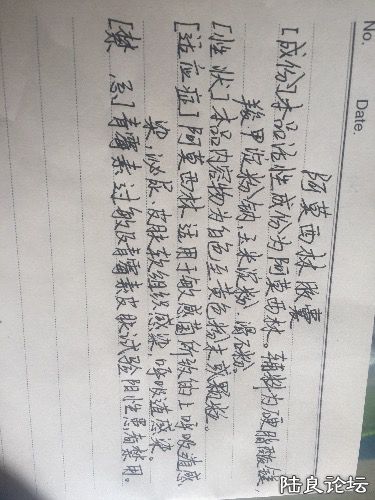 No.
Date.
阿莫西林胶囊
[成份]本品活性成份为阿莫西林。辅料为硬脂酸镁
羧甲淀粉钠,玉米淀粉,滑石粉。
[性状]本品内容物为白色至黄色粉末或颗粒。
[适应症]阿莫西林适用于敏感菌所致的上呼吸道感
染,泌尿、皮肤软组织感染,呼吸道感染。
[禁忌]青霉素过敏及青霉素皮肤试验阳性患者禁用。
陆良论坛